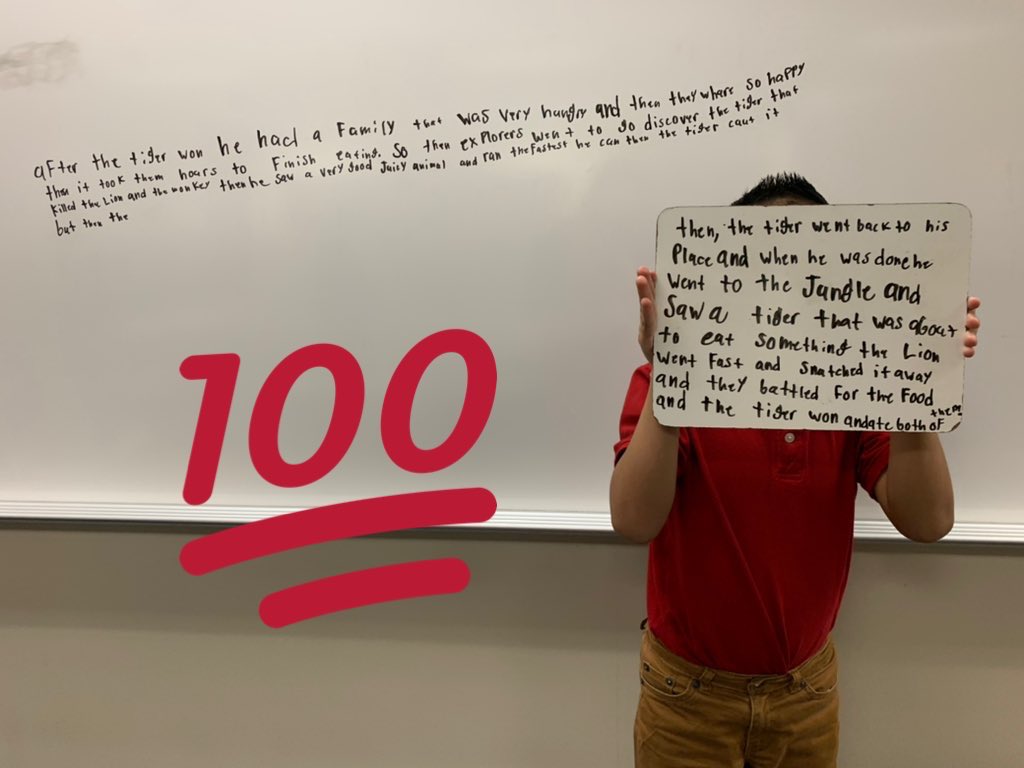 aFter the tiger won he had a Family that was very hungry and then they where so happy
then it took them hours to Finish eating. So then explorers went to go discover the tiger that
killed the Lion and the monkey then he saw a very good Juicy animal and ran the fastest he can then the tiger caut it
but then the
then, the tiger went back to his
Place and when he was done he
went to the Jungle and
Saw a tiger that was about
to eat something the Lion
went Fast and snatched it away
and they battled For the Food
and the tiger won and ate both oF them
100